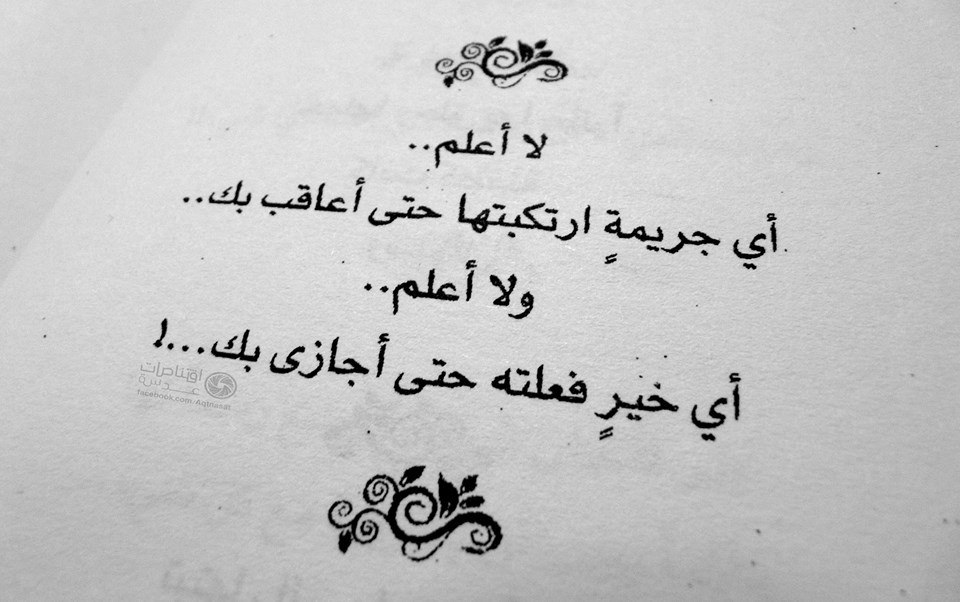 لا أعلم..
أي جريمةٍ ارتكبتها حتى أعاقب بك..
ولا أعلم..
أي خيرٍ فعلته حتى أجازى بك...!
اقتناصات
عدسة
facebook.com/Aqtnasat